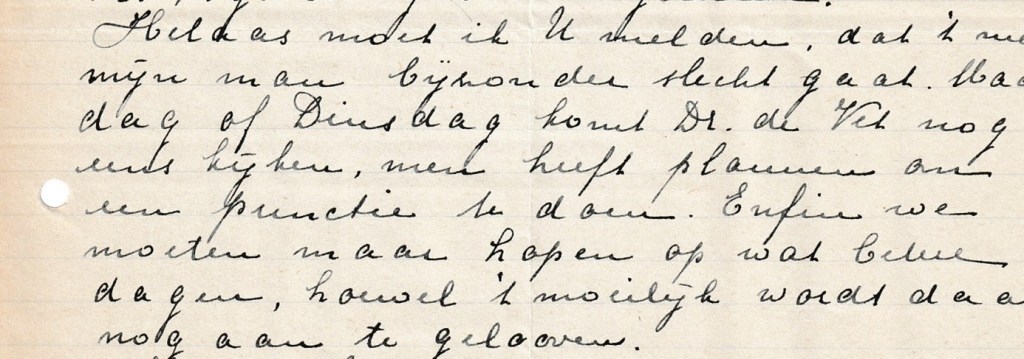 Helaas moet ik U melden, dat 't me
mijn man bijzonder slecht gaat. Maa
dag of Dinsdag komt Dr. de Vet nog
eens kijken, men heeft plannen om
een punctie te doen. Enfin we
moeten maar hopen op wat betere
dagen, hoewel 't moeilijk wordt daa
nog aan te gelooven.